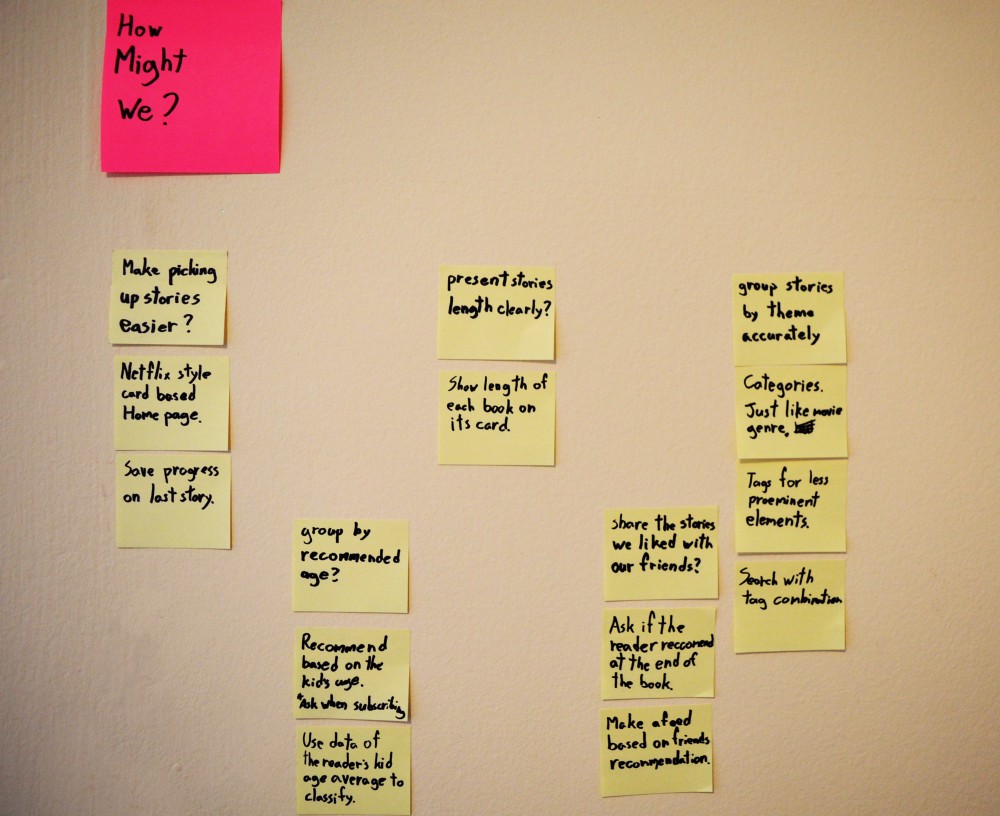 How
Might
We?
Make picking
up stories
easier?
Netflix style
card based
Home page.
Save progress
on last story.
group by
recommended
age?
Recommend
based on the
kids age.
*Ask when subscribing
Use data of
the reader's kid
age average to
classify.
present stories
length clearly?
Show length of
each book on
its card.
share the stories
we liked with
our friends?
Ask if the
reader reccomend
at the end of
the book.
Make a feed
based on friends
recommendation.
group stories
by theme
accurately
Categories.
Just like movie
genre.
Tags for less
proeminent
elements.
Search with
tag combination